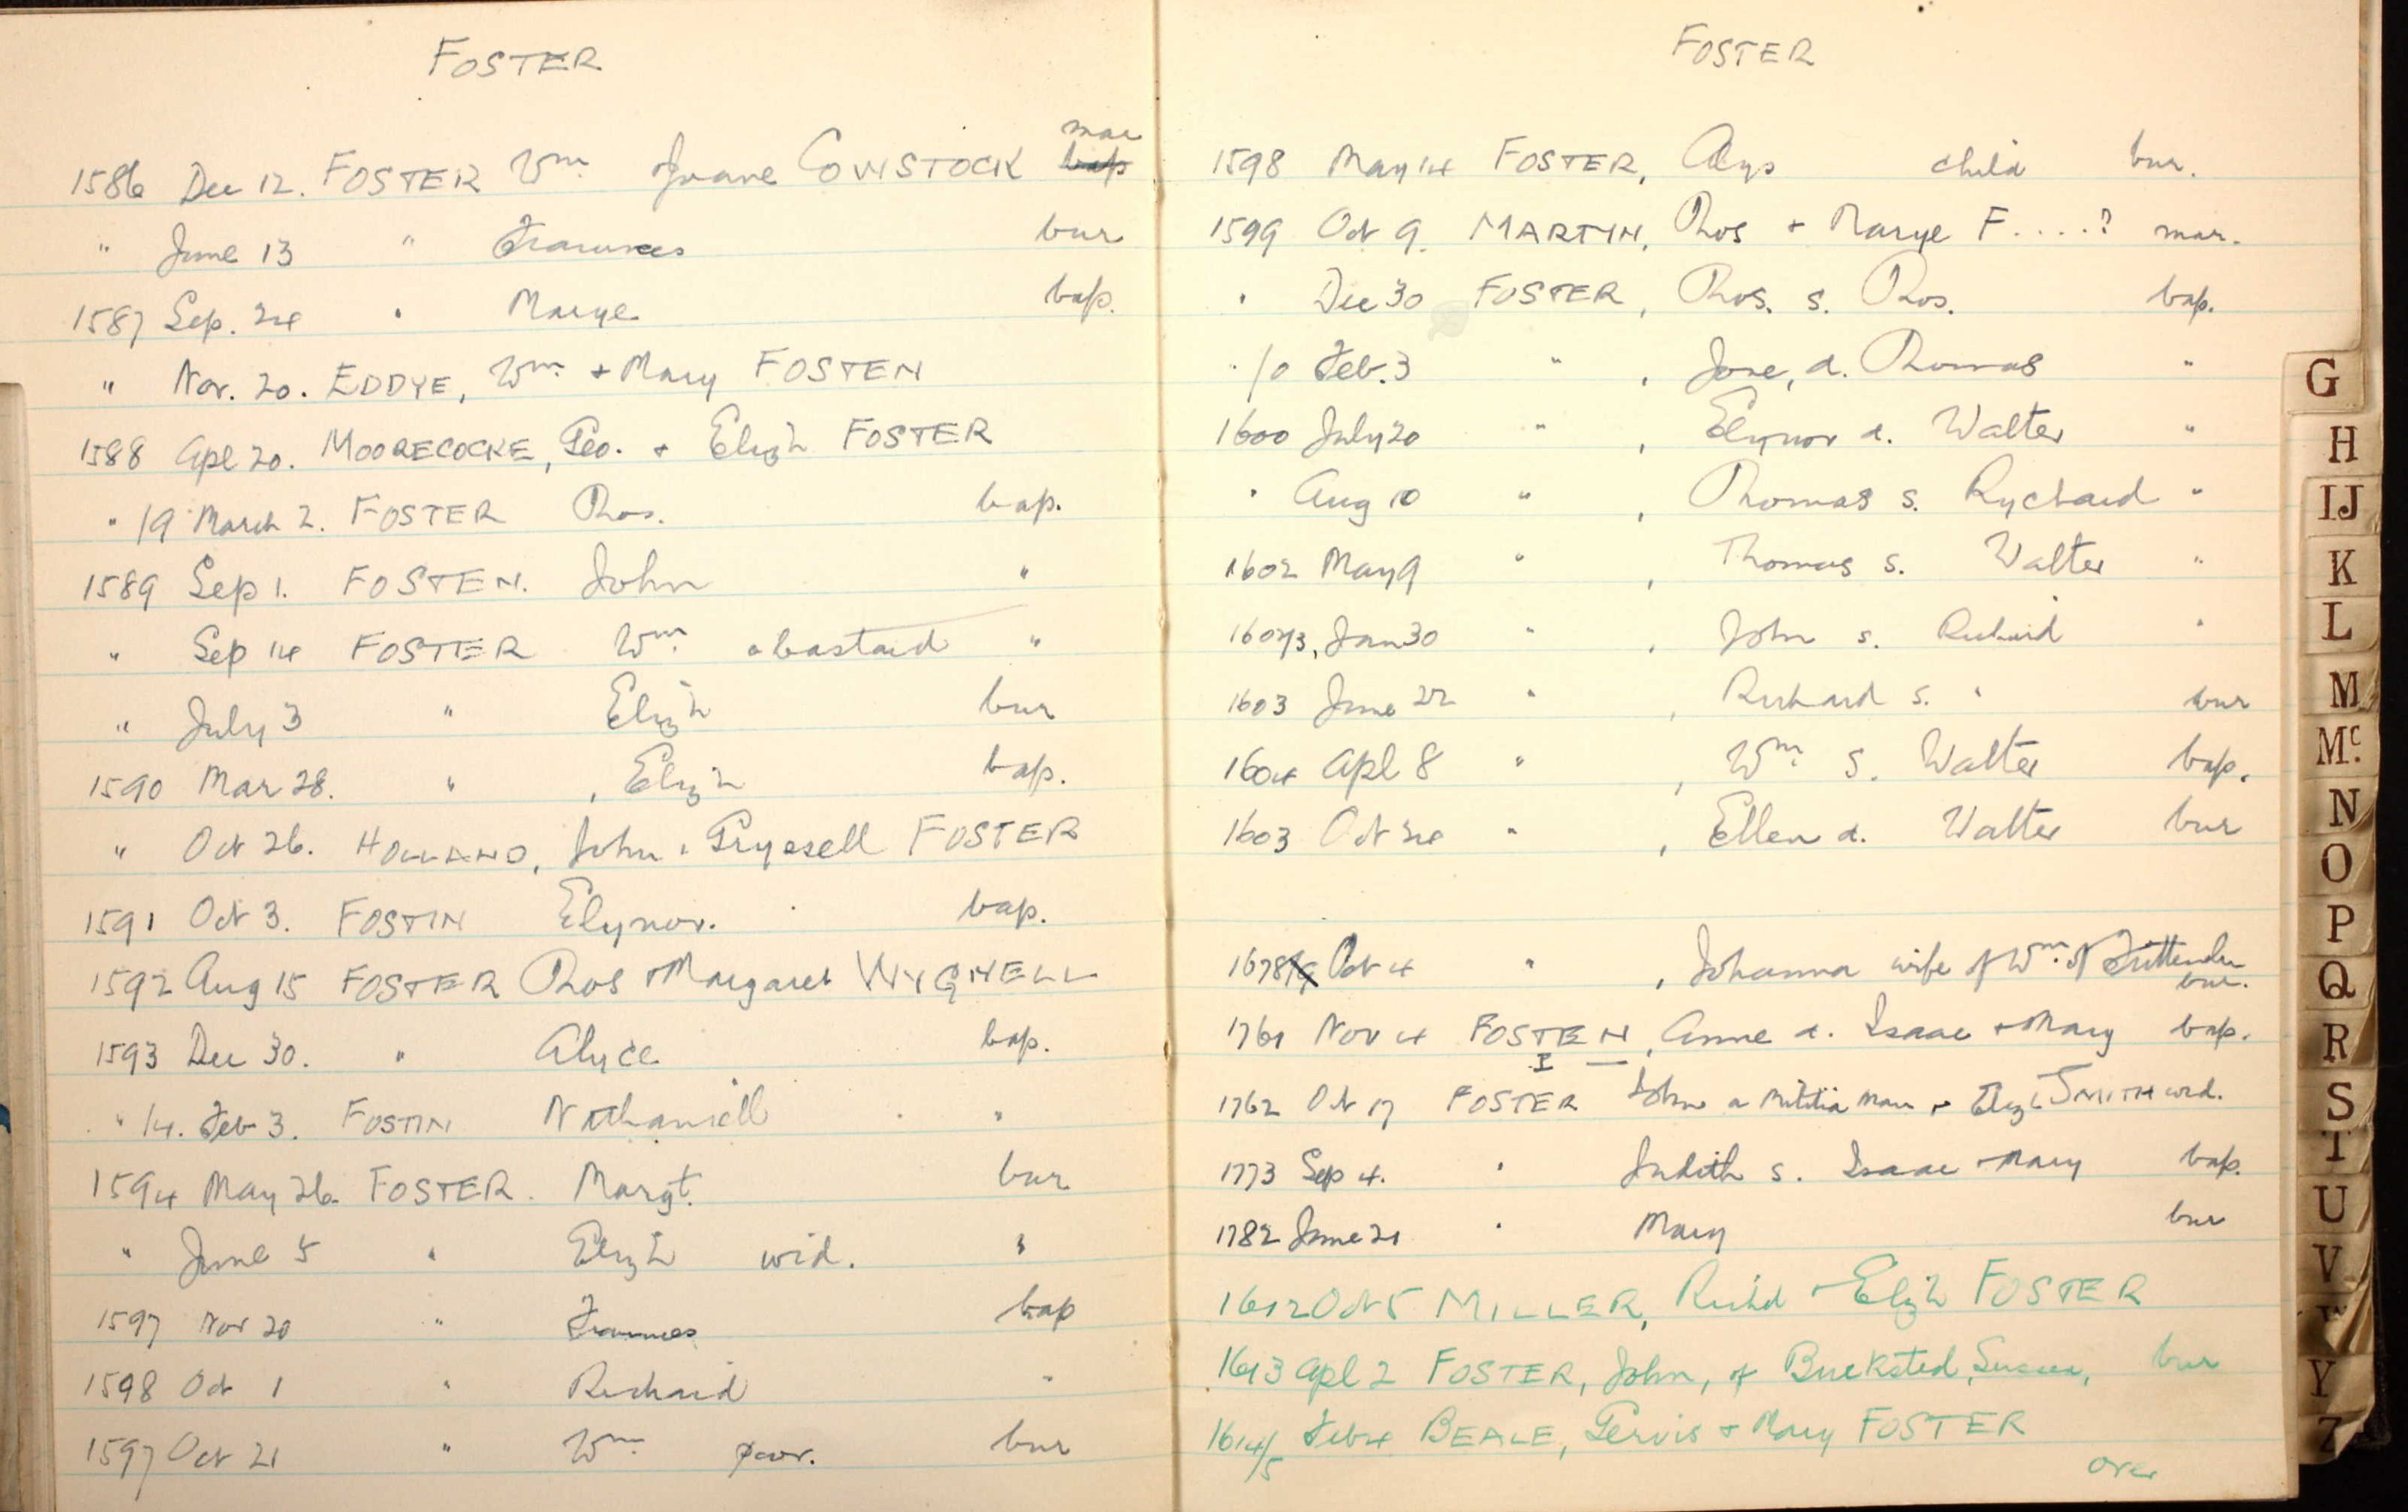 FOSTER
1586 Dec 12. FOSTER Wm Joane COMSTOCK mar bap
" June 13 " Fraunces bur
1587 Sep. 24 " Marye bap.
" Nov. 20. EDDYE, Wm + Mary FOSTEN
1588 Apl 20. MOORECOCKE, Geo. + Elizh FOSTER
" /9 March 2. FOSTER Thos. bap.
1589 Sep 1. FOSTEN. John "
" Sep 14 FOSTER Wm a bastard "
" July 3 " Elizh bur
1590 Mar 28. " , Elizh bap.
" Oct 26. HOLLAND, John + Gryesell FOSTER
1591 Oct 3. FOSTIN Elynor. bap.
1592 Aug 15 FOSTER Thos + Margaret WYGNELL
1593 Dec 30. " Alyce bap.
" /4. Feb 3. FOSTIN Nathaniell "
1594 May 26 FOSTER. Margt. bur
" June 5 " Elizh wid. "
1597 Nov 20 " Fraunces bap
1598 Oct 1 " Richard "
1597 Oct 21 " Wm poor. bur
FOSTER
1598 May 14 FOSTER, Alys child bur.
1599 Oct 9. MARTIN, Thos + Marye F....? mar.
" Dec 30 FOSTER, Thos. s. Thos. bap.
" /0 Feb. 3 " , Jone, d. Thomas "
1600 July 20 " , Elynor d. Walter "
" Aug 10 " , Thomas s. Rychard "
1602 May 9 " , Thomas s. Walter "
1602/3, Jan 30 " , John s. Richard "
1603 June 22 " , Richard s. " bur
1604 Apl 8 " , Wm s. Walter bap.
1603 Oct 24 " , Ellen d. Walter bur
1678/9 Oct 4 " , Johanna wife of Wm of Frittenden bur.
1761 Nov 4 FOSTEN, Anne d. Isaac + Mary bap.
I —
1762 Oct 17 FOSTER John a militia man + Elizh SMITH wid.
1773 Sep 4. " Judith s. Isaac + Mary bap.
1782 June 21 " Mary bur
1612 Oct 5 MILLER, Richd + Elizh FOSTER
1613 Apl 2 FOSTER, John, of Bucksted, Sussex, bur
1614/5 Feb 4 BEALE, Gervis + Mary FOSTER
over
G
H
IJ
K
L
M
Mc.
N
O
P
Q
R
S
T
U
V
W
Y
Z